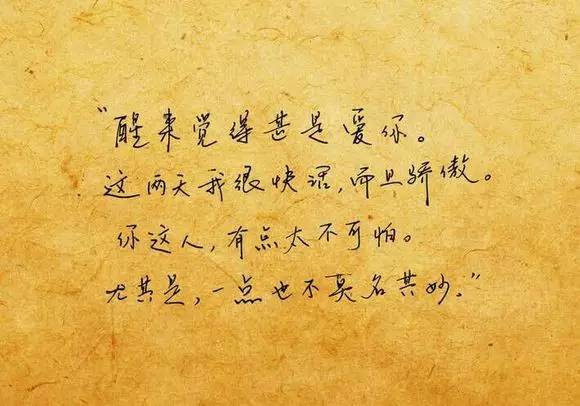 “醒来觉得甚是爱你。
这两天我很快活，而且骄傲。
你这人，有点太不可怕。
尤其是，一点也不莫名其妙。”